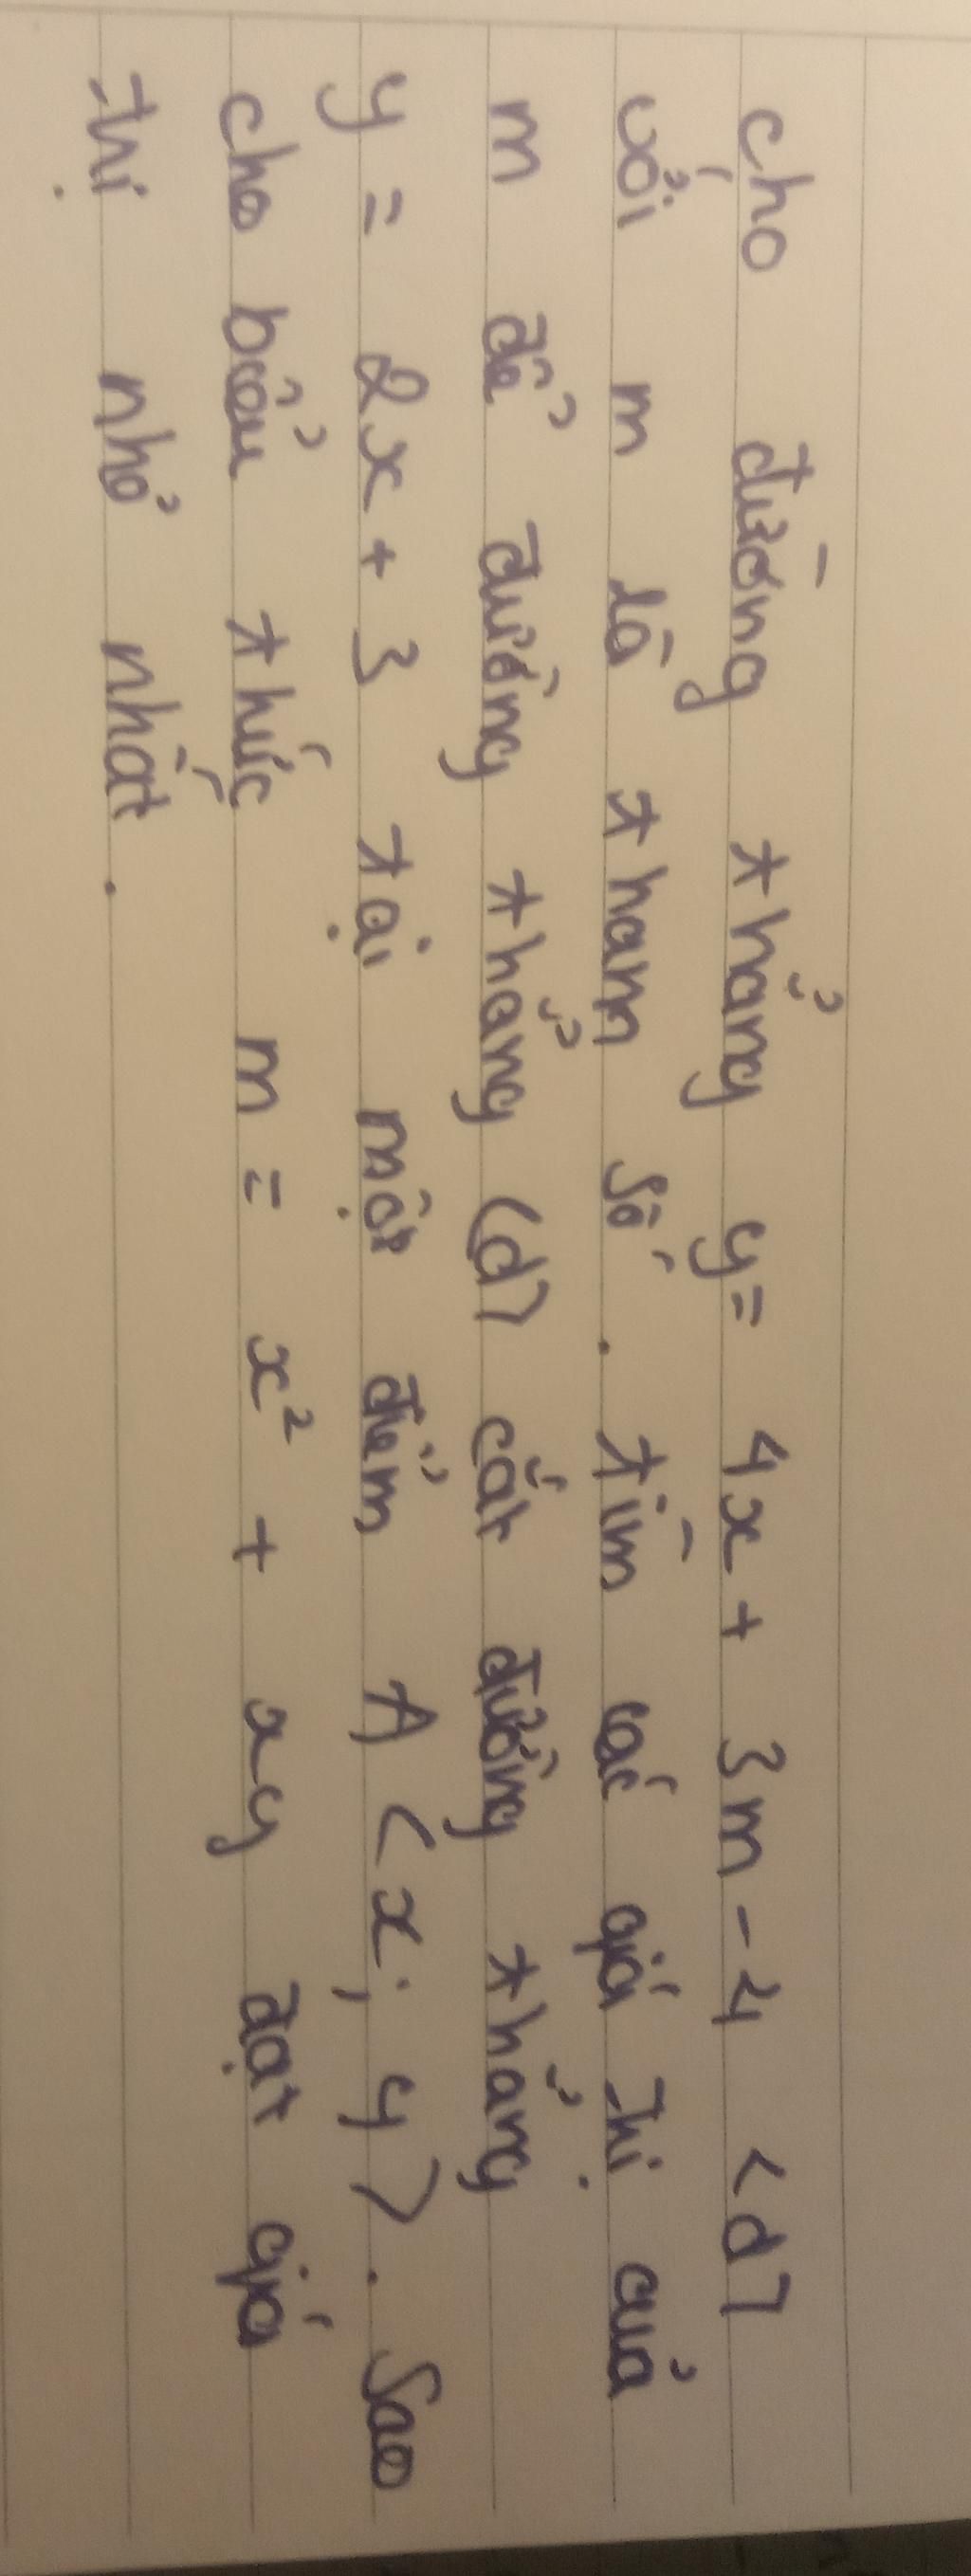 cho đường thẳng y= 4x + 3m - 4 <d>
với m là tham số . tìm các giá trị của
m để đường thẳng (d) cắt đường thẳng
y = 2x + 3 tại một điểm A <x; y> . Sao
cho biểu thức m = x² + xy đạt giá
trị nhỏ nhất .